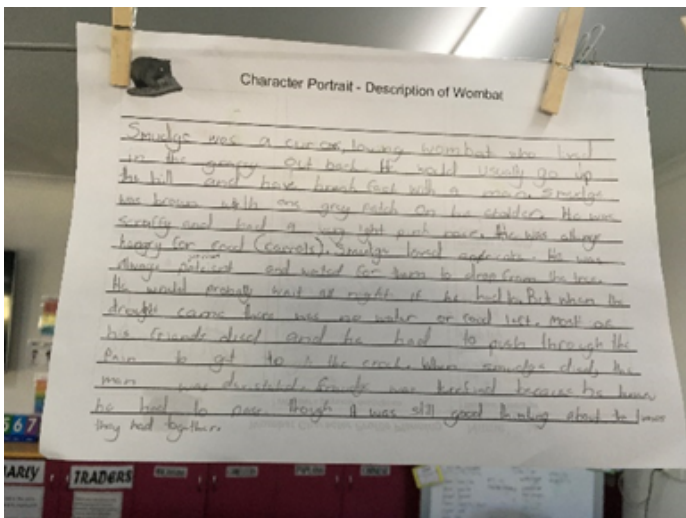 Character Portrait - Description of Wombat
Smudge was a curios, loving wombat who lived
in the out back. He would usually go up
the hill and have break fast with a man. Smudge
was brown with one grey patch on his He was
scruffy and had a very light pink nose. He was always
hungry for food (carrots). Smudge loved apricots. He was
Always patient and waited for them to drop from the tree.
He would probably wait all night if he had to. But when the
drought came there was no water or food left. Most of
his friends died and he had to push through the
Pain to get to the creek. When smudge died, the
man was because he knew
he had to pass. though it was still good thinking about the times
they had together.
5 6 7
EARLY
TRADERS